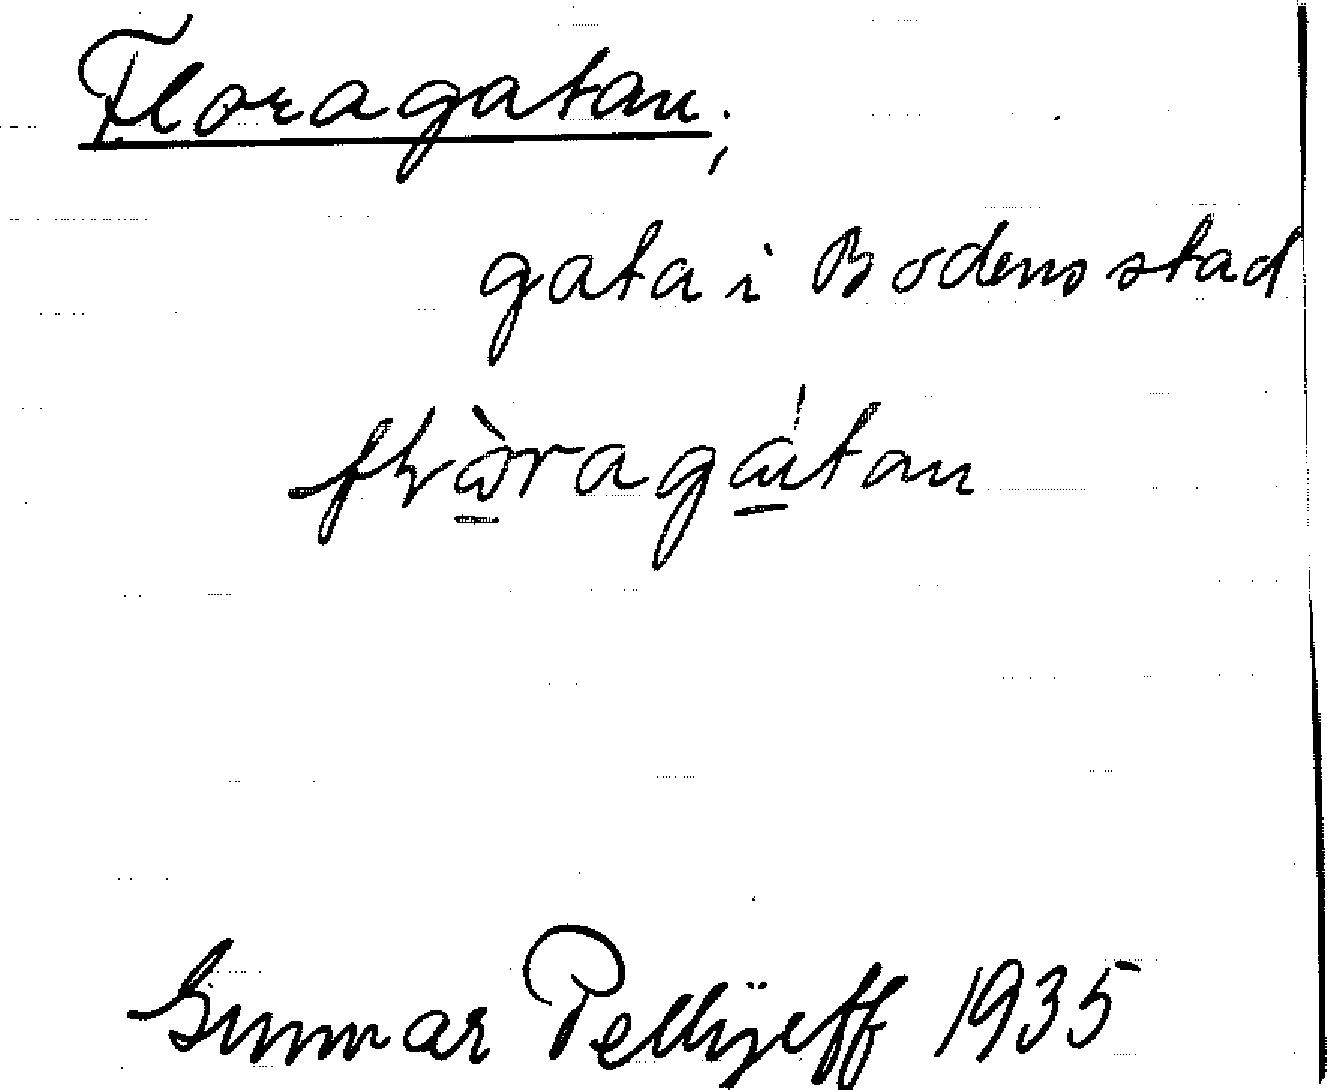 Floragatan;
gata i Bodens stad
Gunnar Pellijeff 1935